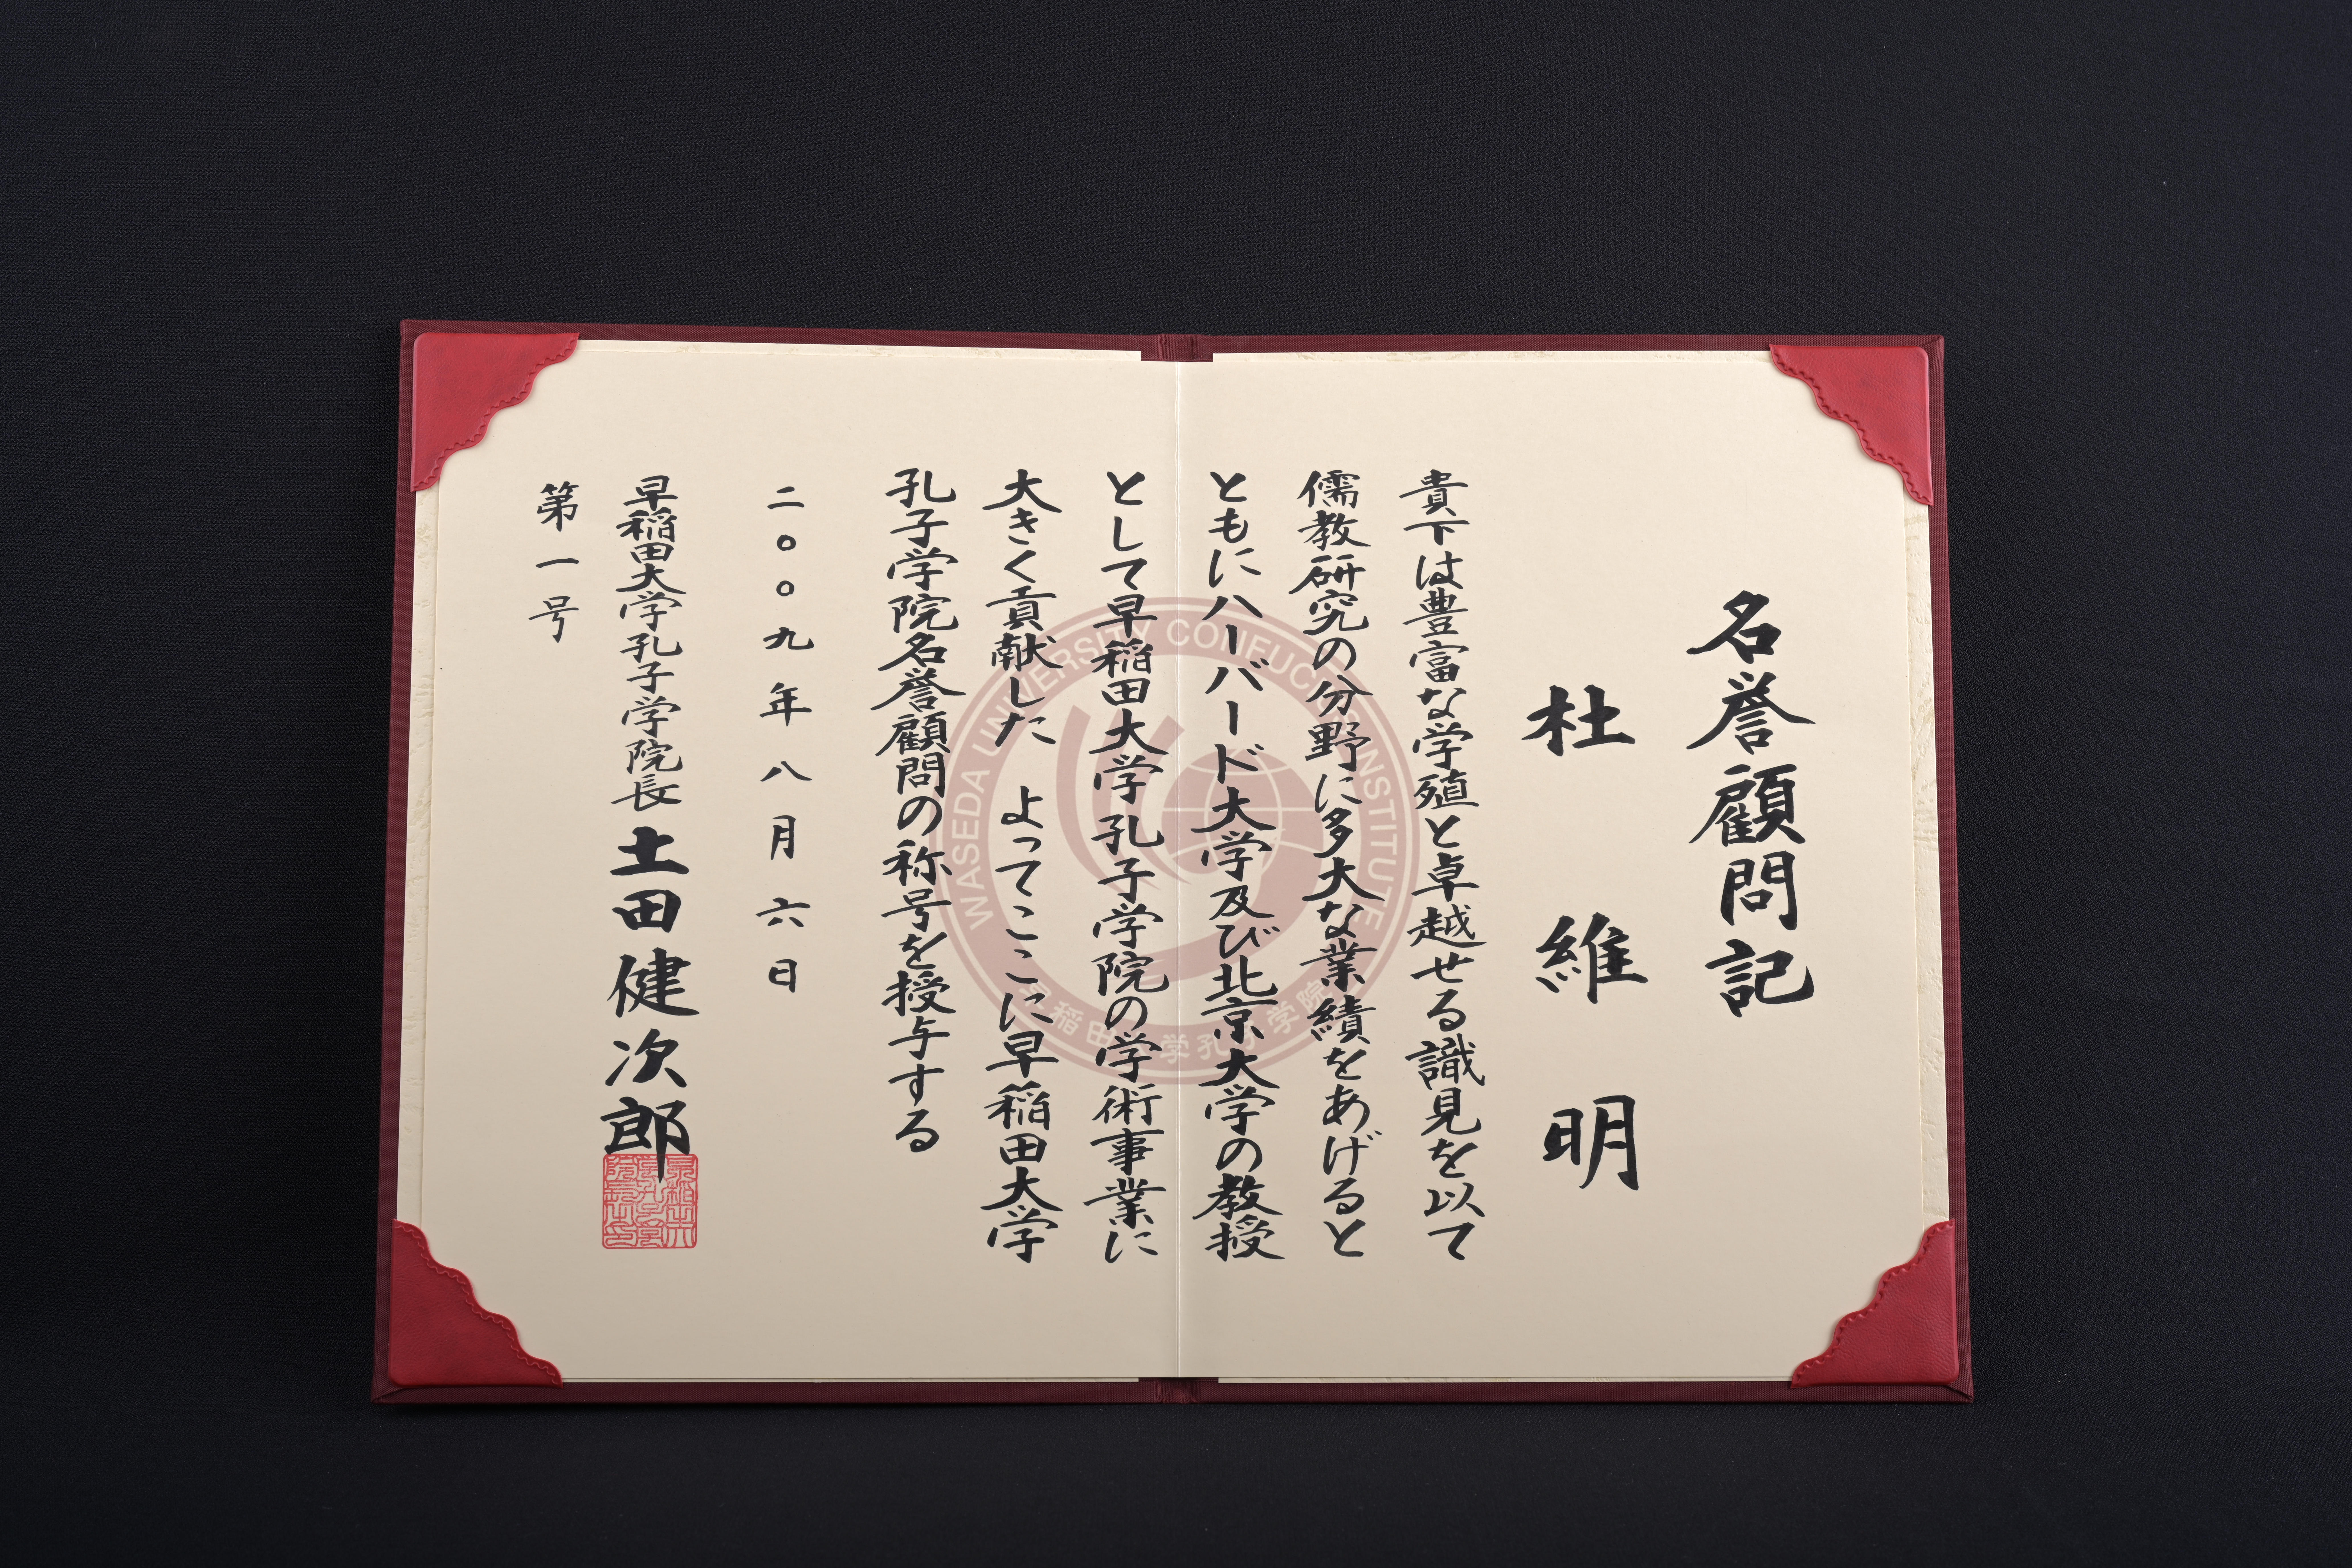 名誉顧問記
杜維明
貴下は豊富な学殖と卓越せる識見を以て
儒教研究の分野に多大な業績をあげると
ともにハーバード大学及び北京大学の教授
として早稲田大学孔子学院の学術事業に
大きく貢献した よってここに早稲田大学
孔子学院名誉顧問の称号を授与する
二〇〇九年八月六日
早稲田大学孔子学院長 土田健次郎
第一号
WASEDA UNIVERSITY CONFUCIUS INSTITUTE
早稲田大学孔子学院